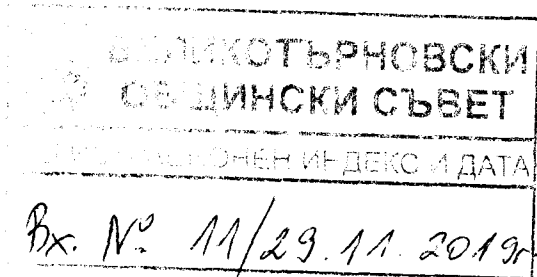 ВЕЛИКОТЪРНОВСКИ
ОБЩИНСКИ СЪВЕТ
РЕГИСТРАЦИОНЕН ИНДЕКС И ДАТА
Вх. № 11/29.11.2019г